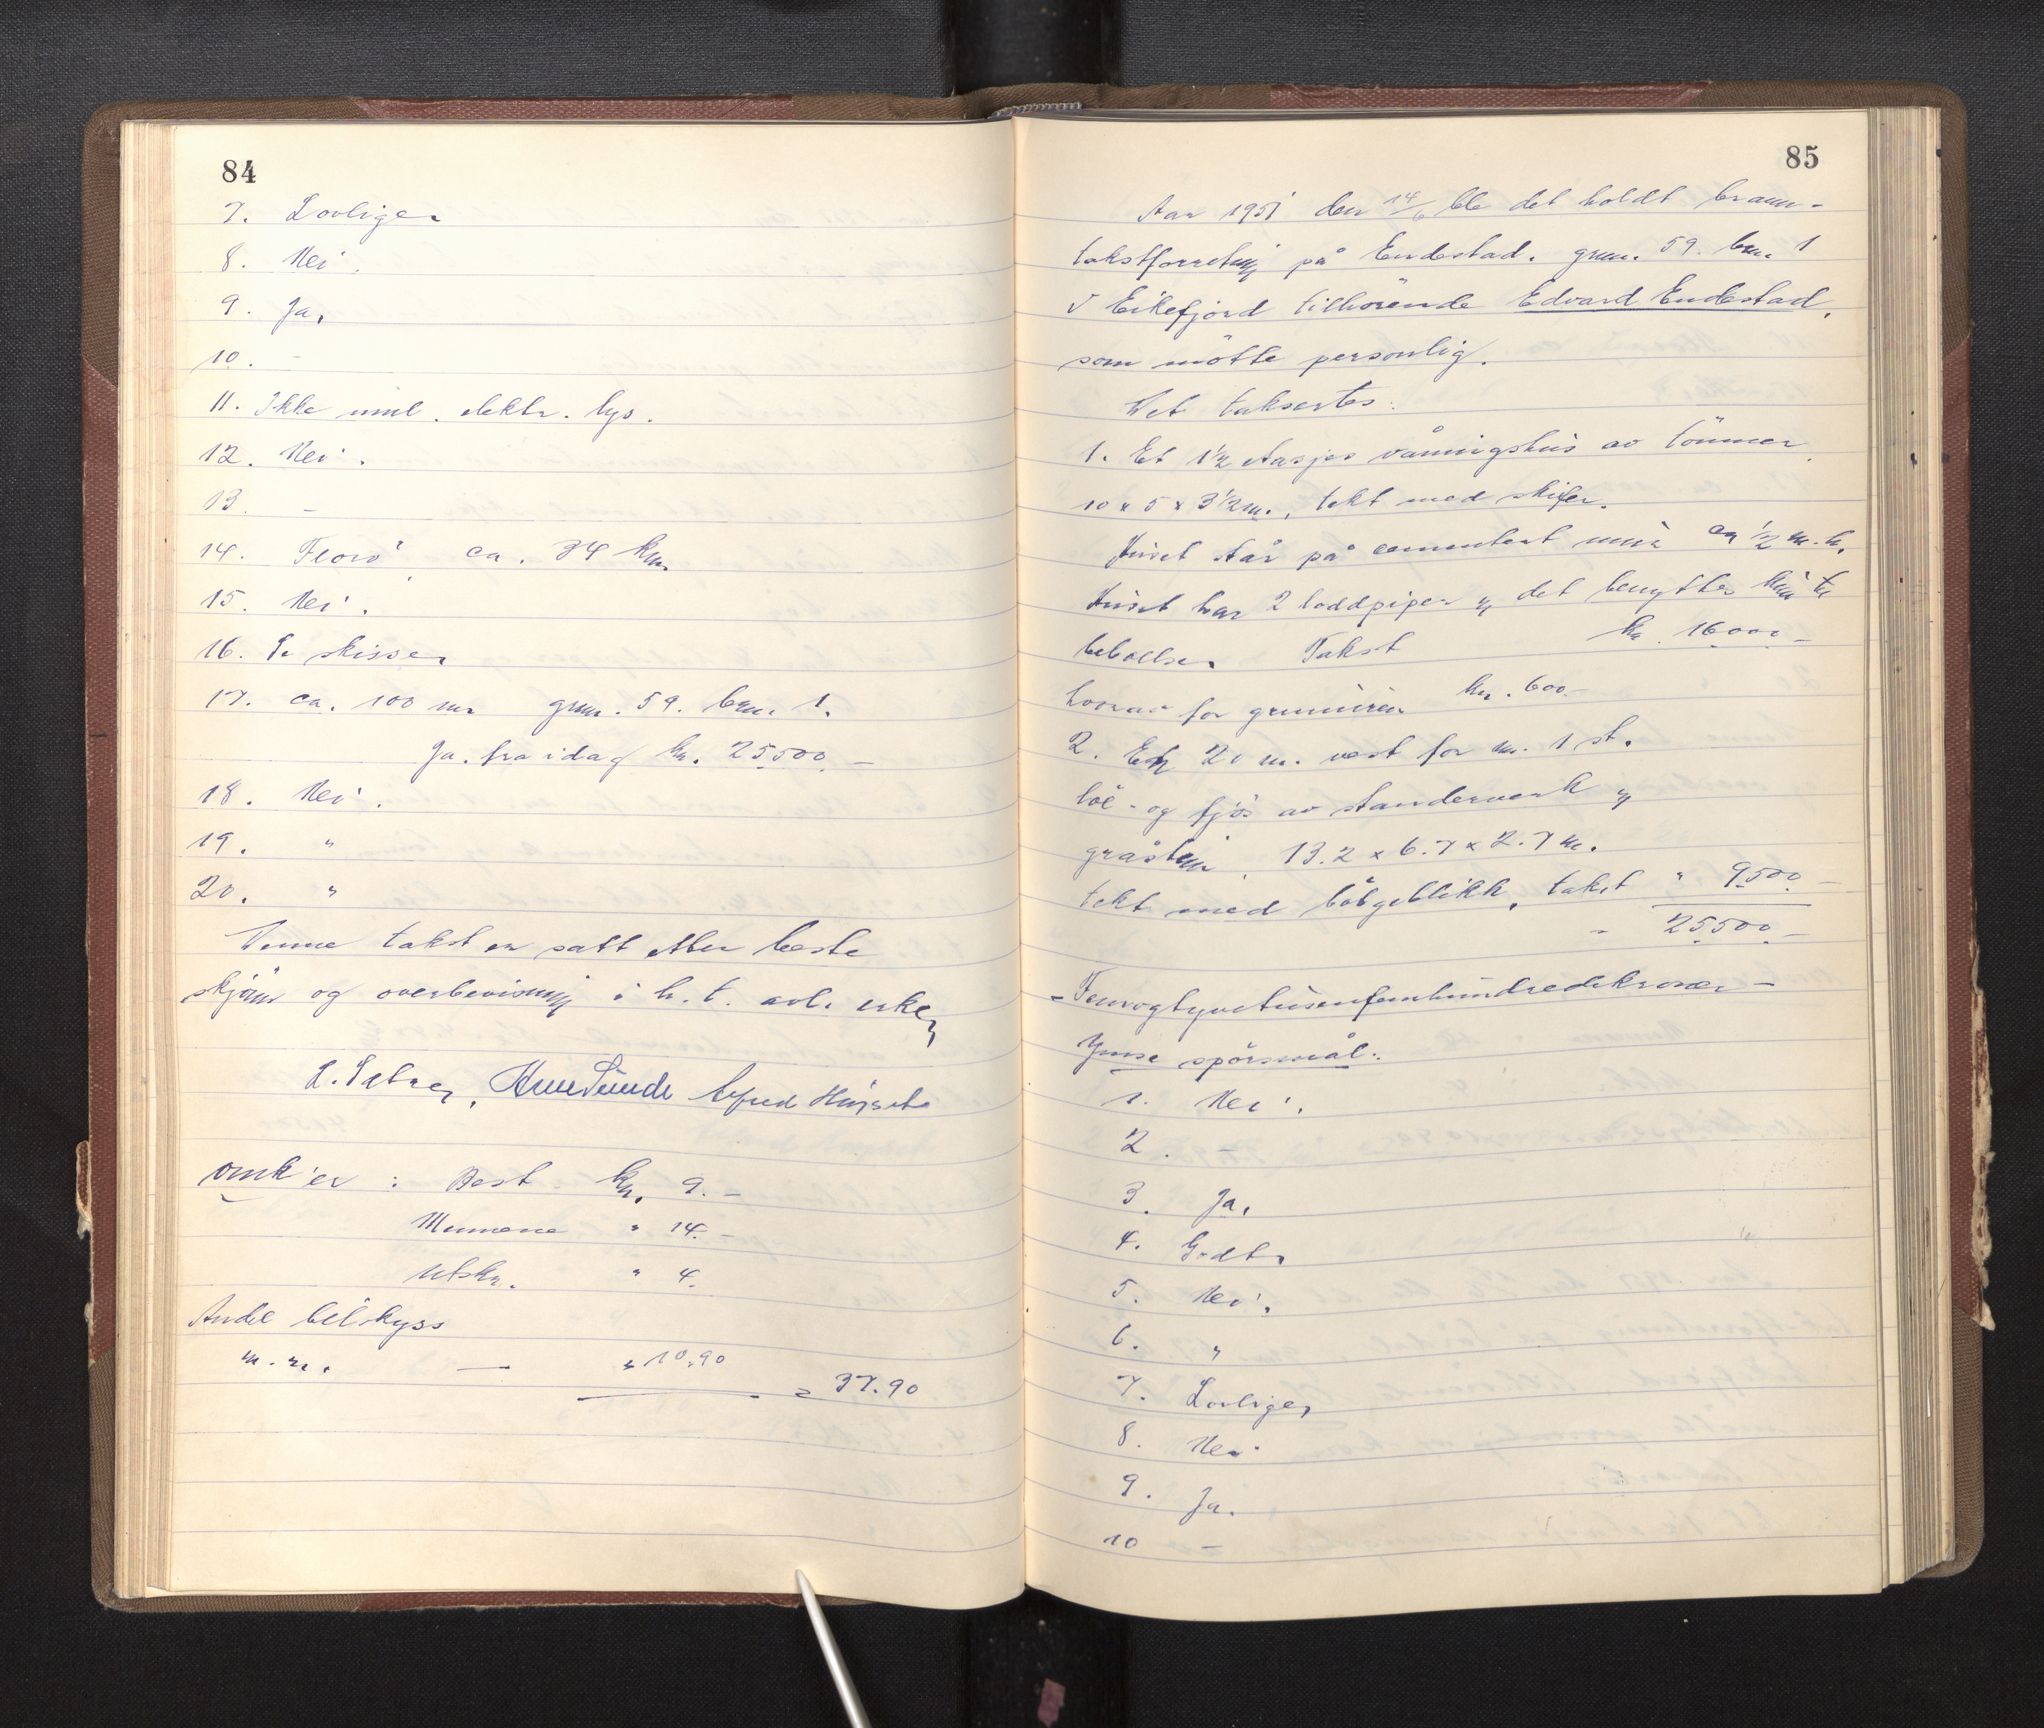 84
7. Lovlige.
8. Nei.
9. Ja.
10. –
11. Ikke innl. elektr. lys.
12. Nei.
13. –
14. Florö, ca. 34 km.
15. Nei.
16. Se skisse.
17. ca. 100 m gnr. 59. bnr. 1.
Ja. fra idag kr. 25500.–
18. Nei.
19. "
20. "
Denne takst er satt etter beste
skjönn og overbevisning i h. t. avl.
L. Sætre, Sunde Alfred
omk'er : Best. kr. 9.–
Mennene " 14.–
Utskr. " 4.
Andel bilskyss
m. m. — " 10.90
= 37.90
85
Aar 1951 den 14/6 ble det holdt brann-
takstforretning på Endestad. gnr. 59. bnr. 1
i Eikefjord tilhörende Edvard Endestad,
som mötte personlig.
Det taksertes:
1. Et 1½ etasjes våningshus av tömmer
10 x 5 x 3½ m., tekt med skifer.
Huset står på cementert mur ca ½ m. h.
Huset har 2 loddpiper og det benyttes kun til
beboelse. Takst kr. 16000.–
hvorav for grunnmur kr. 600.–
2. En 20 m. vest for nr. 1 st.
löe- og fjös av stenderverk og
gråstein, 13.2 x 6.7 x 2.7 m.
tekt med bölgeblikk, takst " 9500.–
" 25500.–
– Femogtyvetusenfemhundredekroner –
Ymse spörsmål:
1. Nei.
2. –
3. Ja.
4. Godt.
5. Nei.
6. "
7. Lovlige,
8. Nei
9. Ja.
10 –